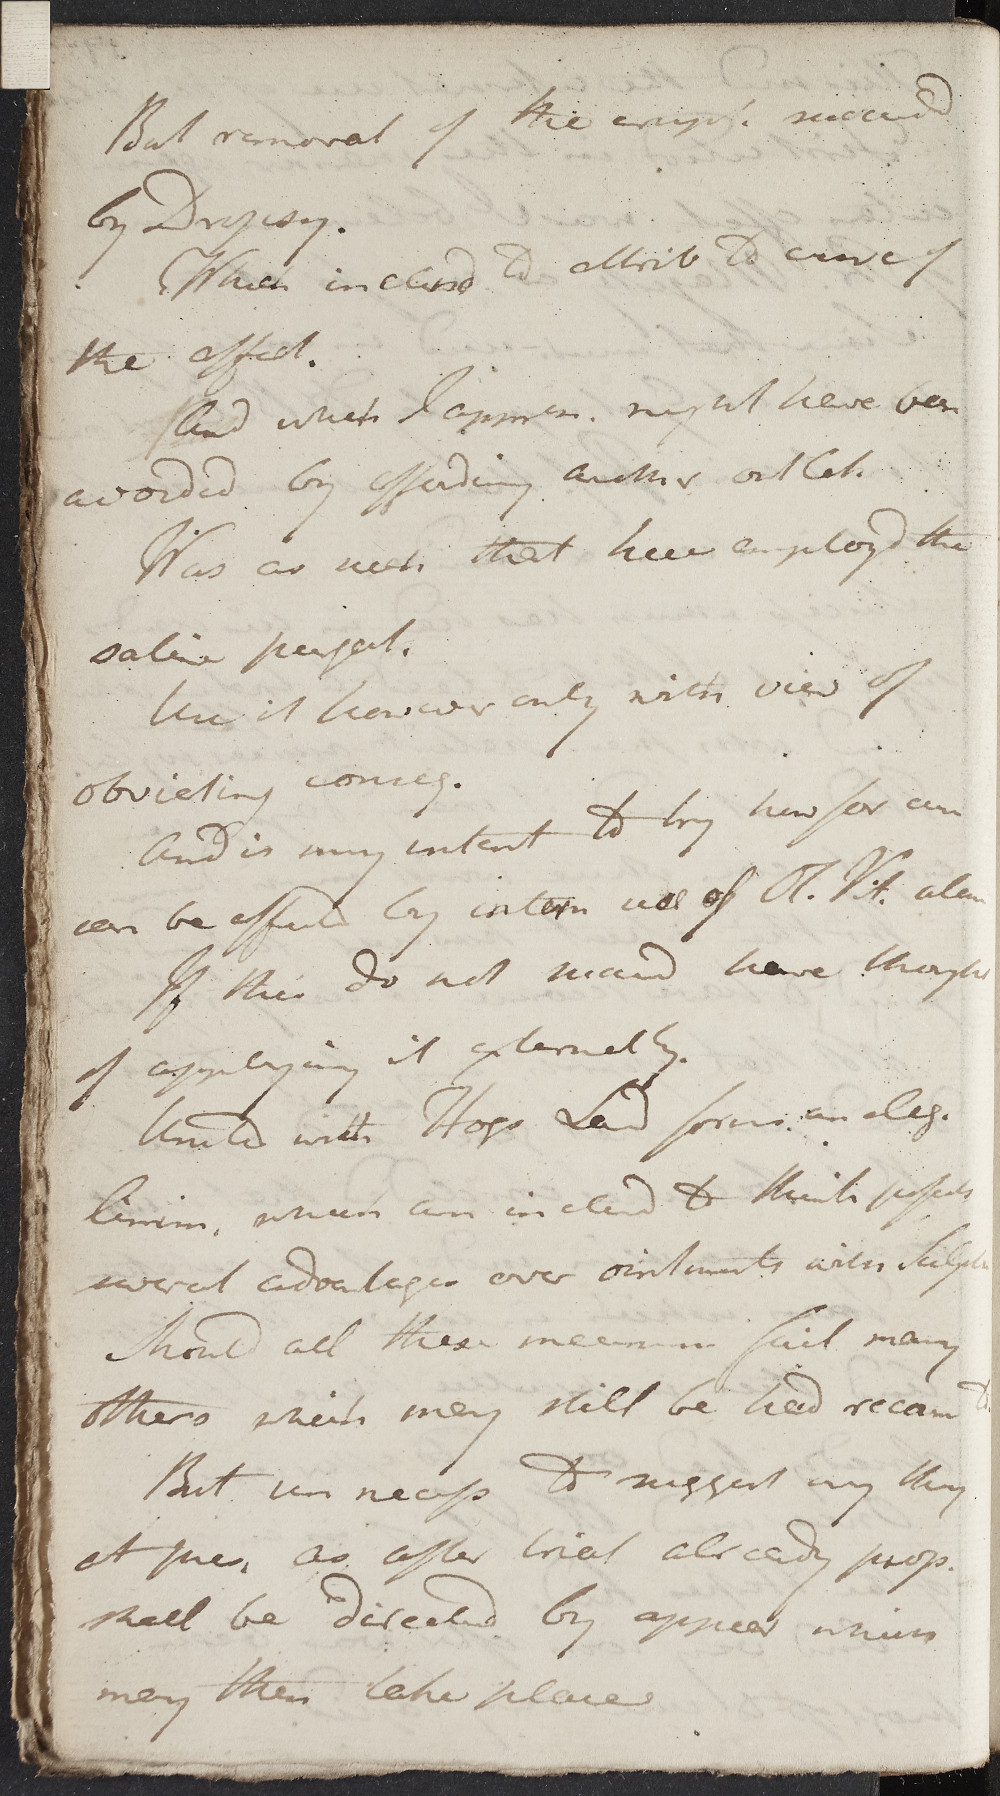 But removal of the erupt. succeed
by Dropsy.
Which inclind to attrib to cure of
the affect.
And which I apprehen. might have been
avoided by affording another outlet.
Was as such that have employd the
saline purgat.
Use it however only with view of
obviating conseq.
And is my intent to try how far cure
can be effected by intern use of Ol. Vit. alone
If this do not succeed have thought
of applying it externally.
United with Hogs Lard forms an eleg.
linim. which am inclined to think possess
several advantages over ointments with Sulphu
Should all these means fail many
others which may still be had recourse to
But un necess to suggest any thing
at pres. as after trial already prop.
shall be directed by appear which
may then take place